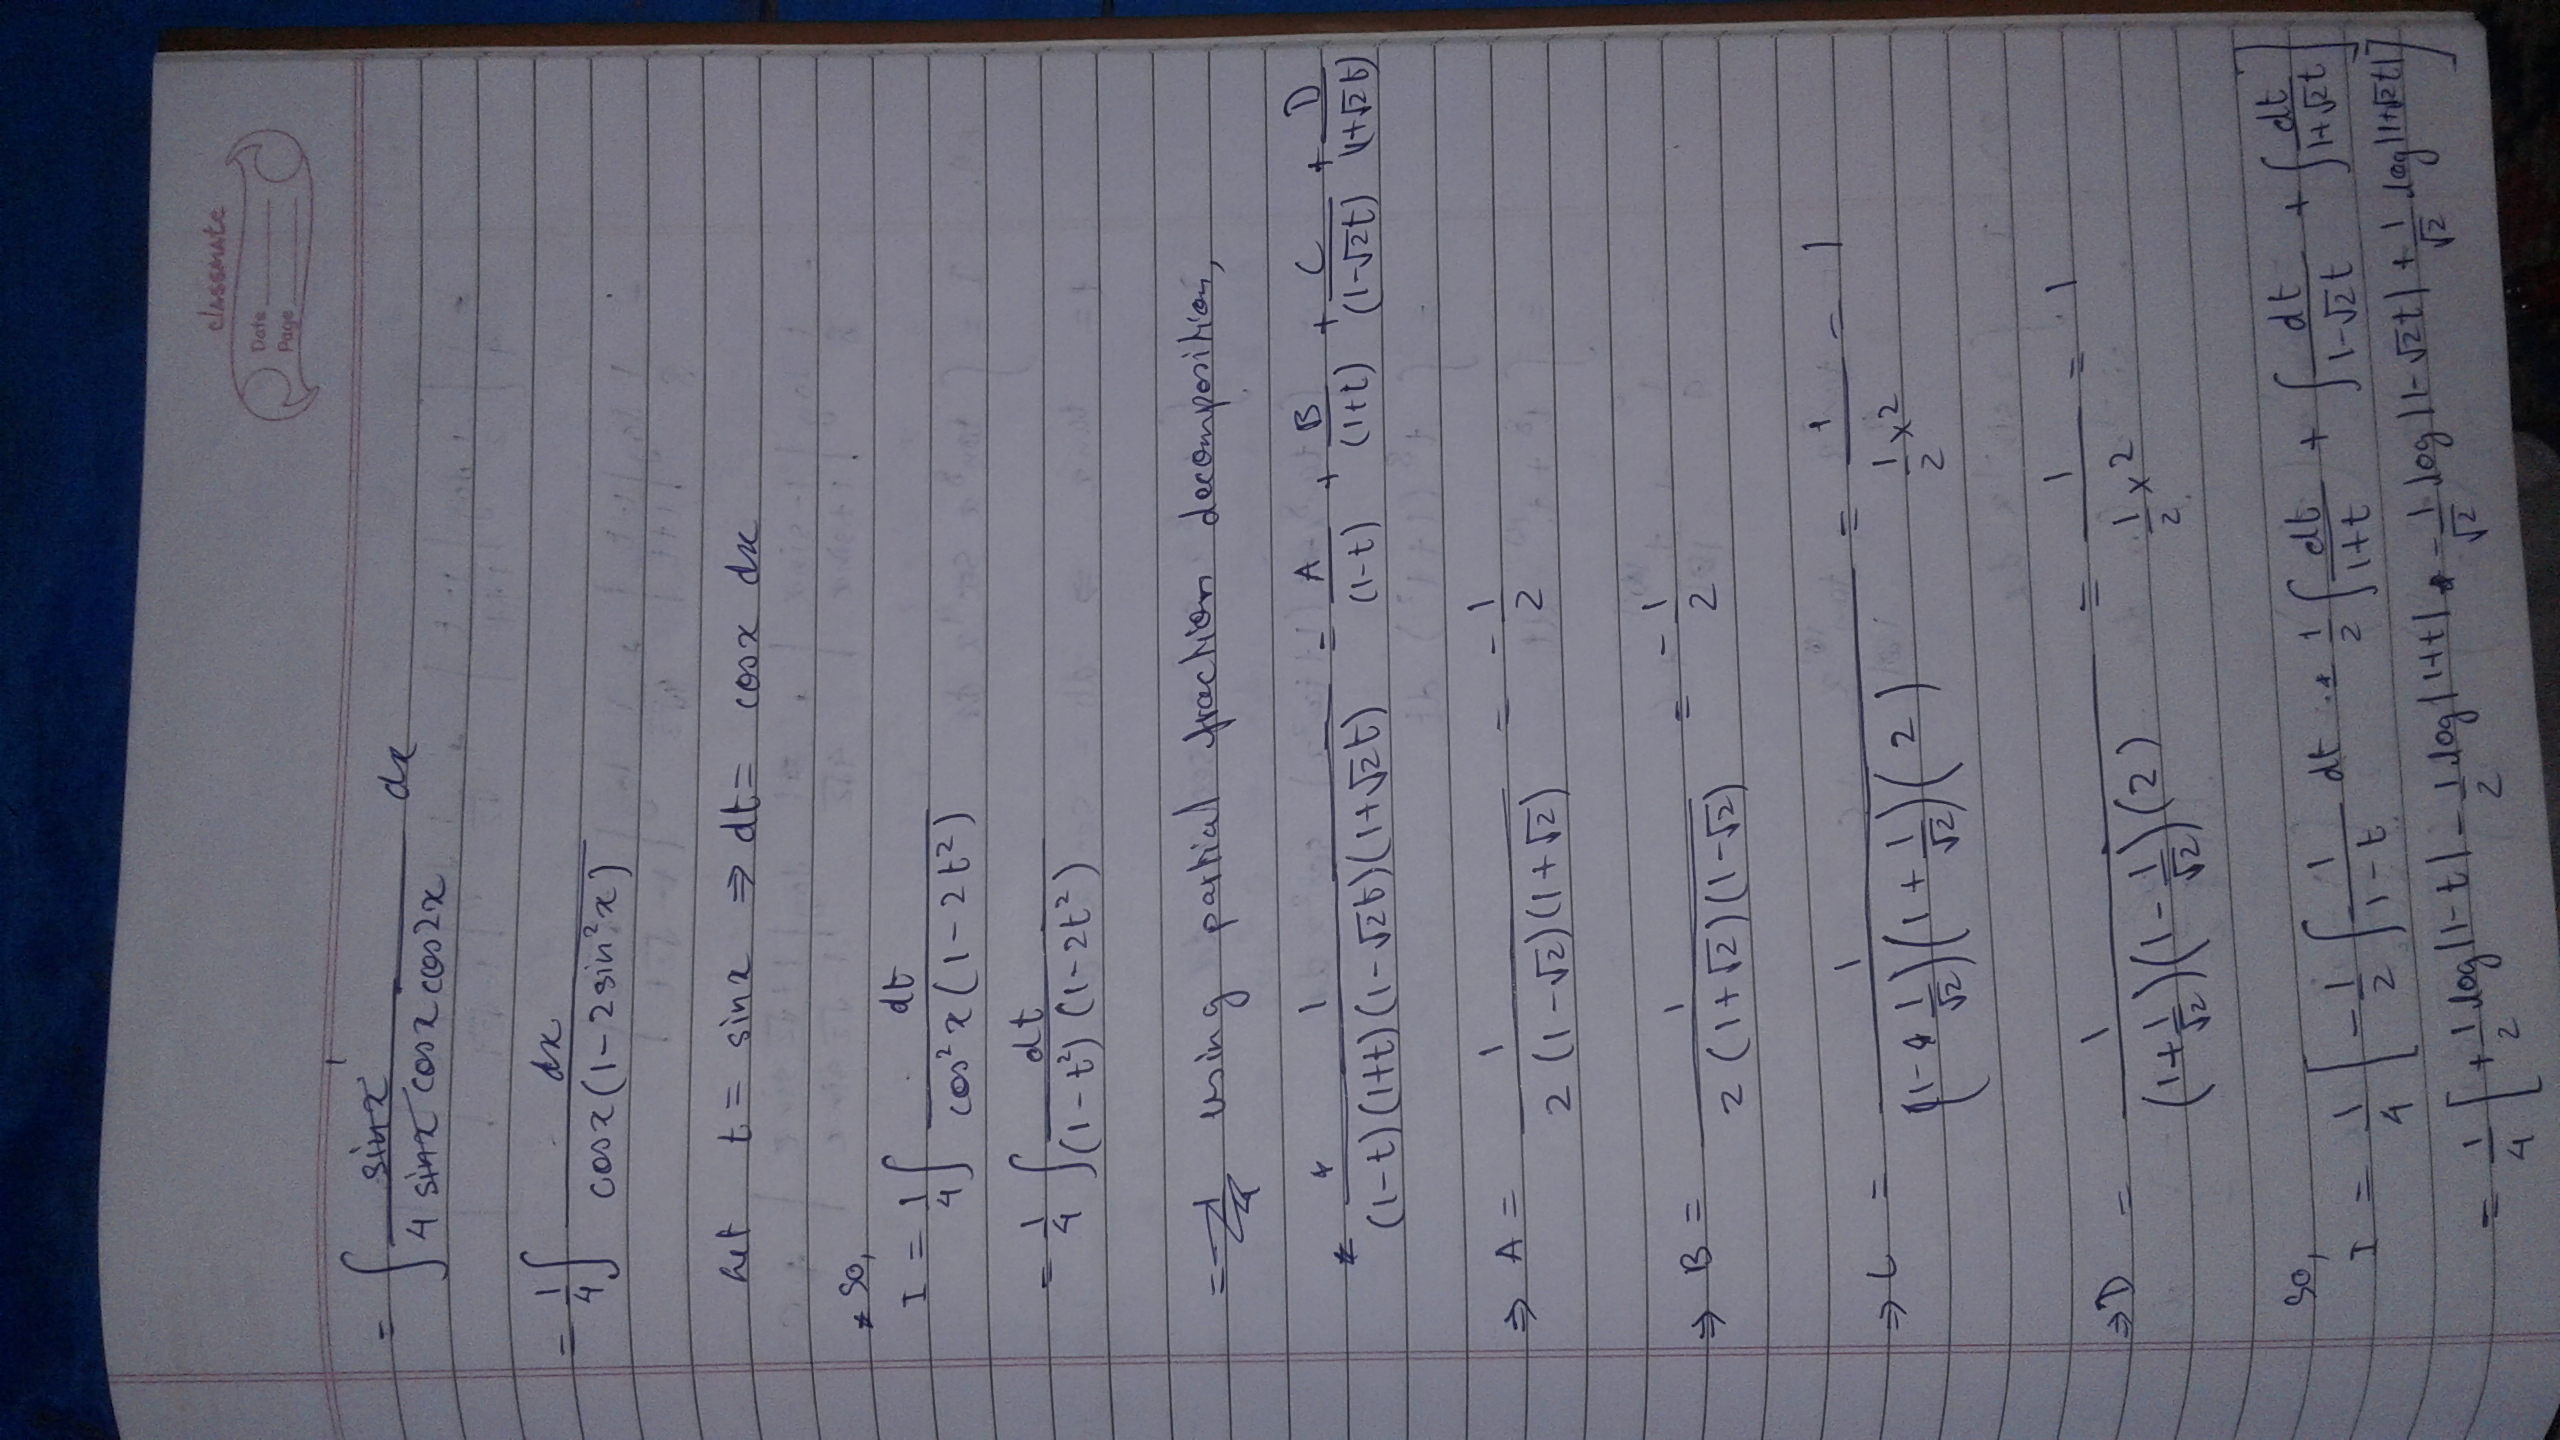 classmate
Date
Page
= ∫ sinx / 4 sinx cosx cos2x dx
1
= 1/4 ∫ dx / cosx(1-2sin²x)
Let t = sinx ⇒ dt = cosx dx
So,
I = 1/4 ∫ dt / cos²x(1-2t²)
= 1/4 ∫ dt / (1-t²)(1-2t²)
= using partial fraction decomposition,
1 / (1-t)(1+t)(1-√2t)(1+√2t) = A/(1-t) + B/(1+t) + C/(1-√2t) + D/(1+√2t)
⇒ A = 1 / 2(1-√2)(1+√2) = -1/2
⇒ B = 1 / 2(1+√2)(1-√2) = -1/2
⇒ C = 1 / (1-1/√2)(1+1/√2)(2) = 1 / 1/2×2 = 1
⇒ D = 1 / (1+1/√2)(1-1/√2)(2) = 1 / 1/2×2 = 1
So,
I = 1/4 [-1/2 ∫ 1/1-t dt - 1/2 ∫ dt/1+t + ∫ dt/1-√2t + ∫ dt/1+√2t]
= 1/4 [+1/2 log|1-t| - 1/2 log|1+t| - 1/√2 log|1-√2t| + 1/√2 log|1+√2t|]